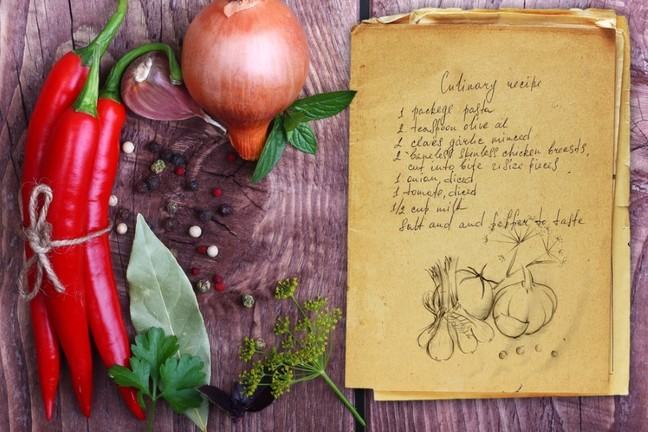 Culinary recipe
1 package pasta
2 teaspoon olive oil
2 cloves garlic minced
2 boneless skinless chicken breasts,
cut into bite
pieces
1 onion, diced
1 tomato, diced
1/2 cup milk
Salt and and pepper to taste